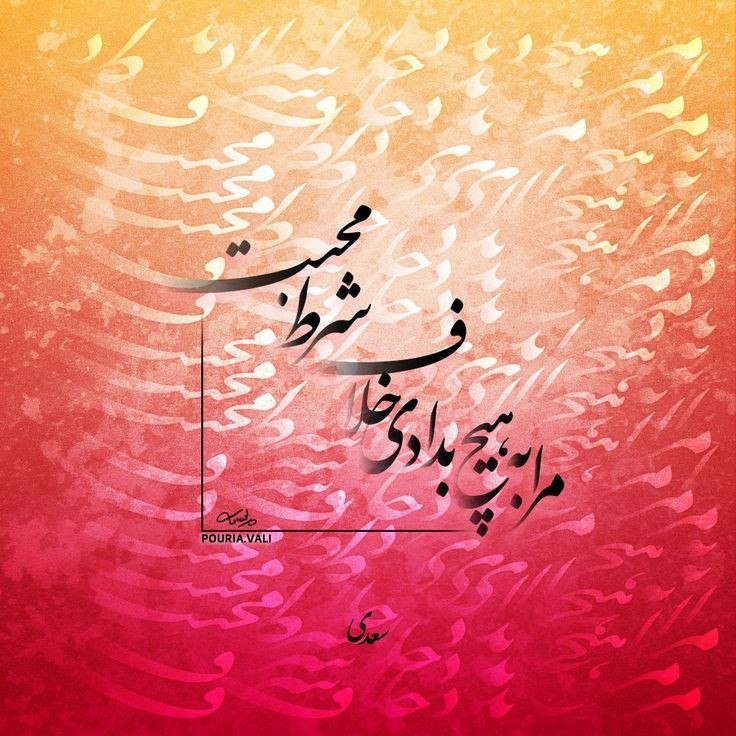 مرا به هیچ بدادی خلاف شرط محبت
POURIA.VALI
سعدی